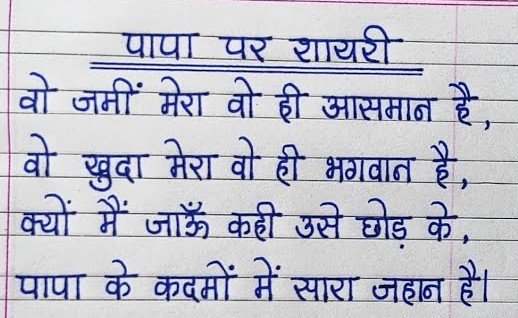 पापा पर शायरी
वो जमीं मेरा वो ही आसमान है,
वो खुदा मेरा वो ही भगवान है,
क्यों मैं जाऊँ कही उसे छोड़ के,
पापा के कदमों में सारा जहान है।